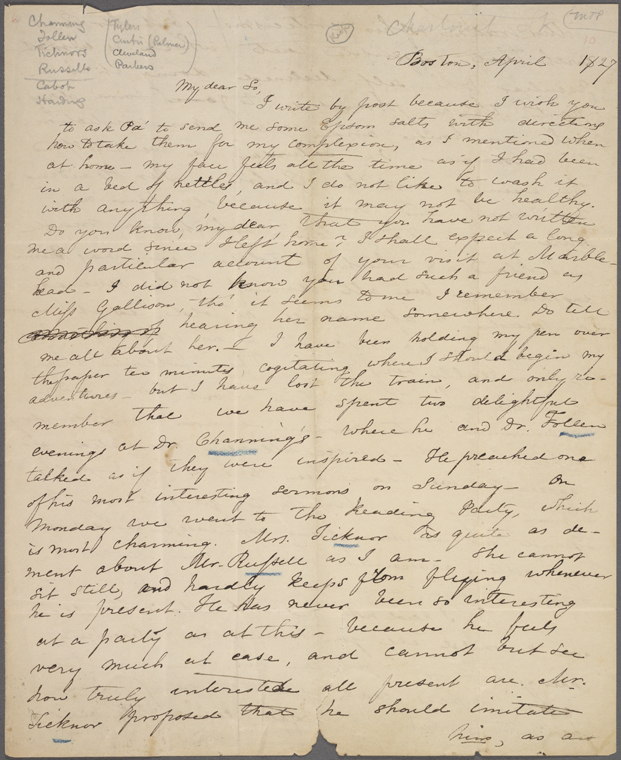 Channing
Follen
Ticknors
Russells
Cabot
Harding
Tylers
Curtis (Palmer)
Cleveland
Parkers
MTP
MTP
Boston, April 1827
My dear So,
I write by post because I wish you
to ask Pa' to send me some Epsom salts with directions
how to take them for my complexion, as I mentioned when
at home - my face feels all the time as if I had been
in a bed of nettles, and I do not like to wash it
with anything, because it may not be healthy.
Do you know, my dear that you have not written
me a word since I left home? I shall expect a long
and particular account of your visit at Marble-
head - I did not know you had such a friend as
Miss Gallison, tho' it seems to me I remember
hearing her name somewhere. Do tell
me all about her. - I have been holding my pen over
the paper ten minutes, cogitating where I should begin my
adventures - but I have lost the train, and only re-
member that we have spent two delightful
evenings at Dr. Channing's - where he and Dr. Follen
talked as if they were inspired - He preached one
of his most interesting sermons on Sunday - On
Monday we went to the Reading Party, which
is most charming. Mrs. Ticknor is quite as de-
ment about Mr. Russell as I am - She cannot
sit still, and hardly keeps from flying whenever
he is present. He has never been so interesting
at a party as at this - because he feels
very much at ease, and cannot but see
how truly interested all present are. Mr.
Ticknor proposed that he should imitate
him, as an